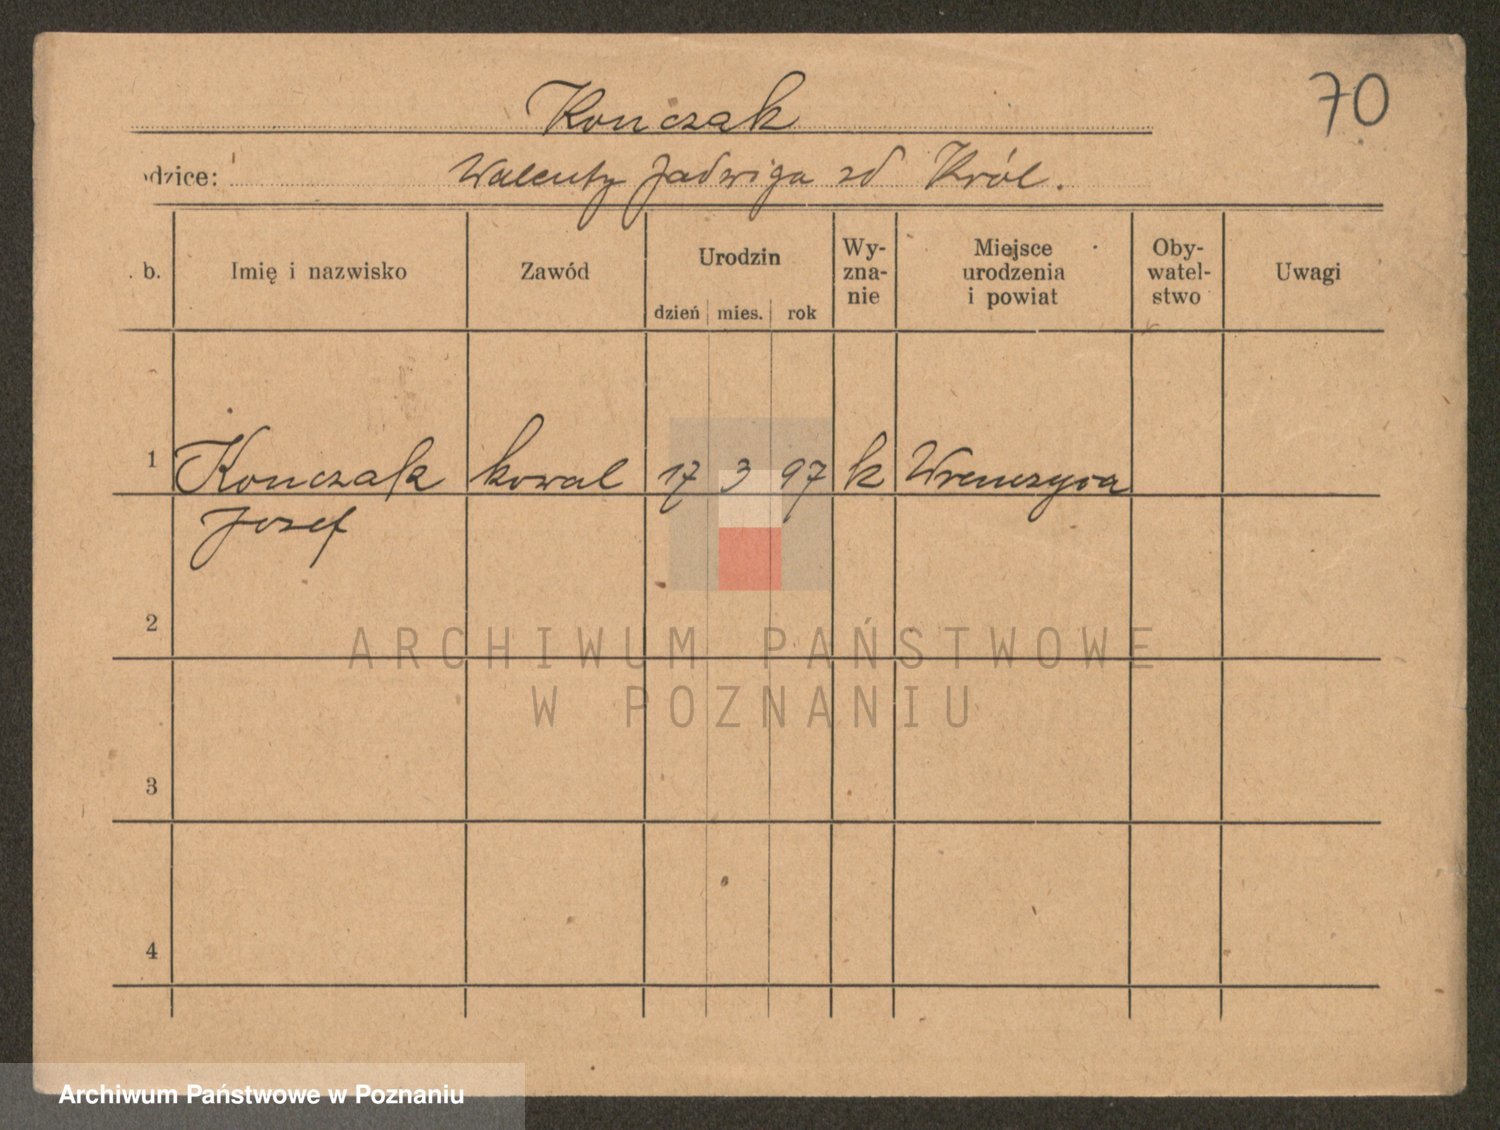 70
Konczak
odzice: Walenty Jadwiga zd Król.
. b. Imię i nazwisko Zawód Urodzin Wy- zna- nie Miejsce urodzenia i powiat Oby- watel- stwo Uwagi
dzień mies. rok
1 Konczak kowal 17 3 97 k
Jozef
2
ARCHIWUM PAŃSTWOWE
W POZNANIU
3
4
Archiwum Państwowe w Poznaniu